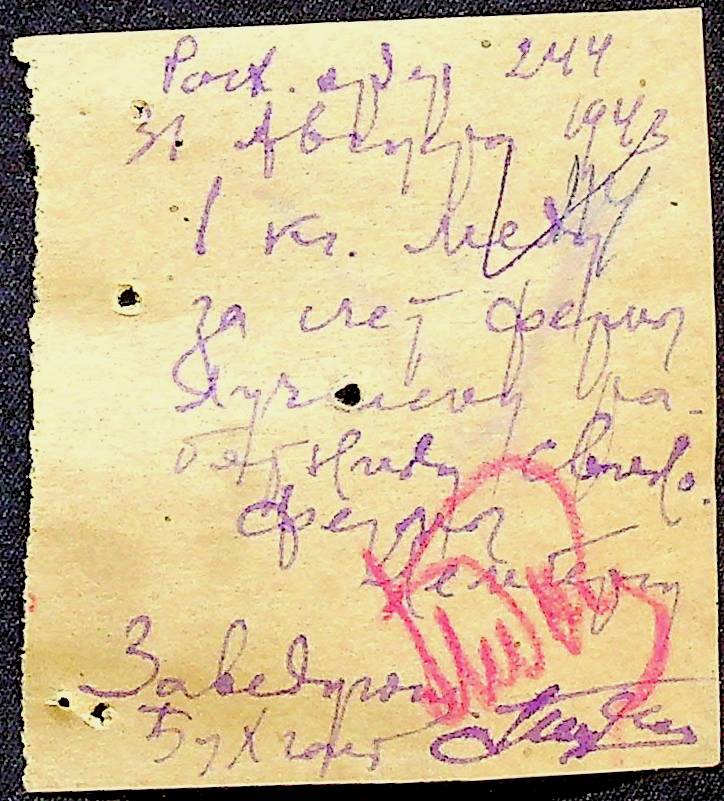 Расх. ордер 244
31 Августа 1943
1 кг. меду
за счет фермы
Лучшему ра-
ботнику свино-
фермы
Заведующ
Бухгалт